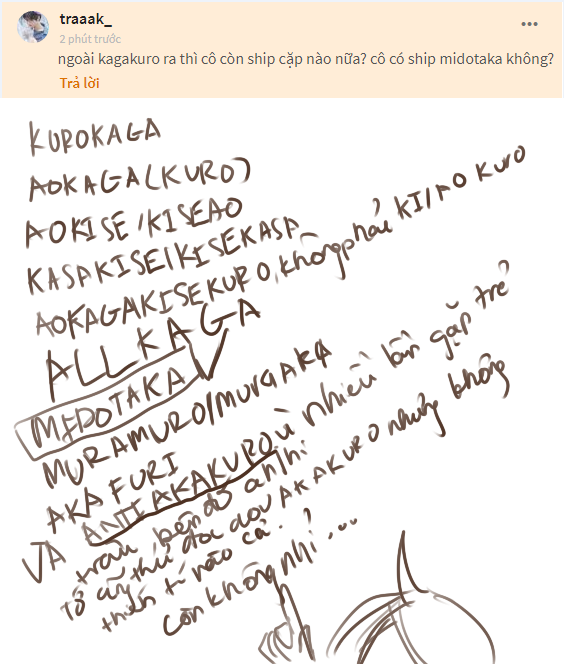 traaak_
2 phút trước
ngoài kagakuro ra thì cô còn ship cặp nào nữa? cô có ship midotaka không?
Trả lời
KUROKAGA
AOKAGA(KURO)
AOKISE/KISEAO
KASAKISE/KISEKASA
AOKAGAKISEKURO, không phải KI/AO KURO
ALLKAGA
MIDOTAKA
MURAMURO/MURAAKA
AKAFURI
VÀ ANTI AKAKURO vì nhiều lần gặp trẻ
trâu bên đó
Tớ cũng thử đọc AKAKURO nhưng không
thiến tí nào cả.
còn không nhỉ...